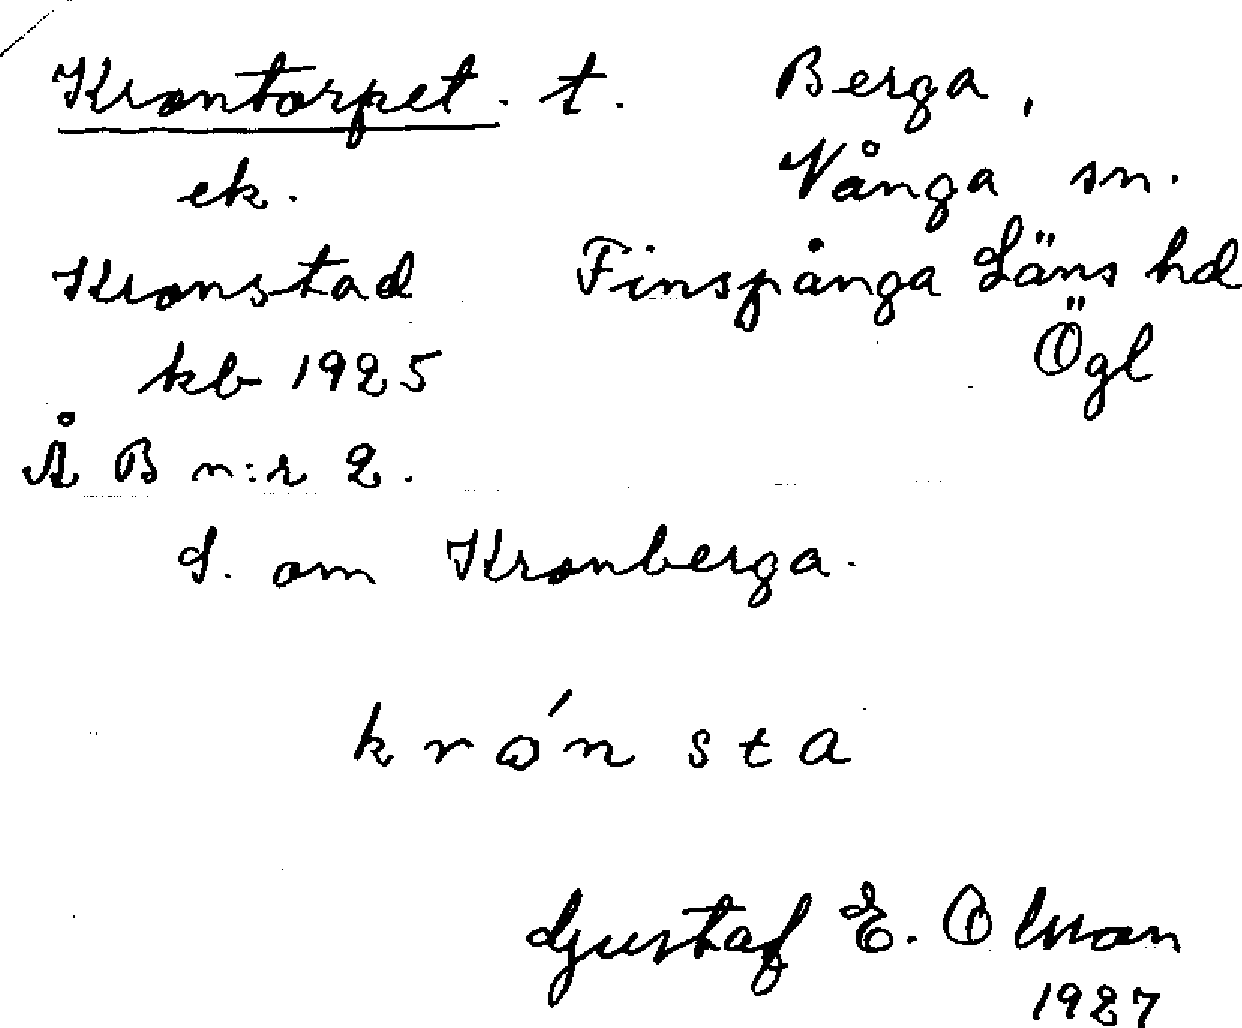 Krontorpet. t. Berga,
ek. Vånga sn.
Kronstad Finspånga Läns hd
kb 1925 Ögl
Å B n:r 2.
S. om Kronberga.
krǿn sta
Gustaf E. Olsson
1927